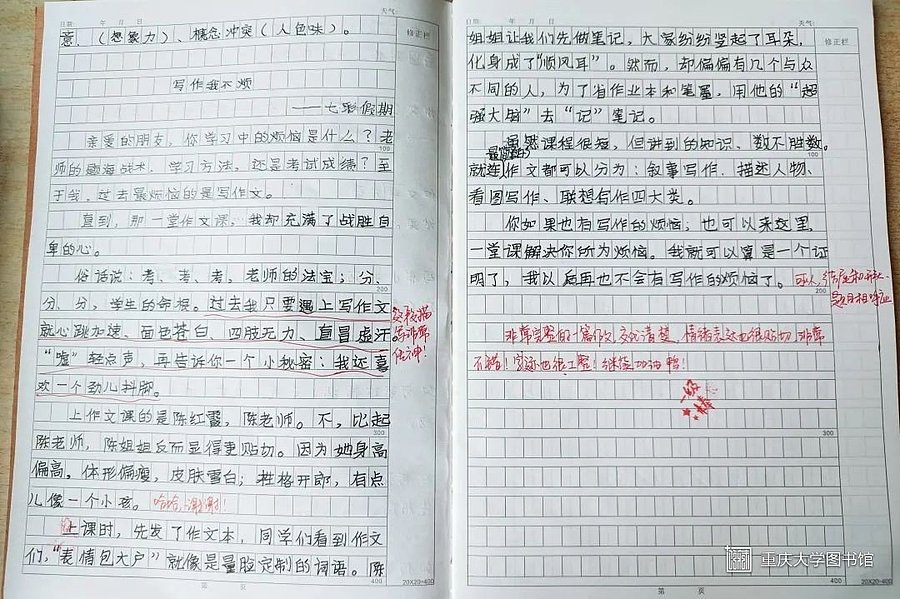 天气:
日期: 年 月 日
修正栏
意、(想象力)、概念冲突(人色味)。
写作我不烦
——七彩假期
亲爱的朋友,你学习中的烦恼是什么?老
100
师的题海战术、学习方法,还是考试成绩?至
于我,过去最烦恼的是写作文。
直到,那一堂作文课,我却充满了战胜自
卑的心。
俗话说:考、考、考,老师的法宝;分、
200
分、分,学生的命根。过去我只要遇上写作文
就心跳加速、面色苍白、四肢无力、直冒虚汗。
“嘘”轻点声,再告诉你一个小秘密:我还喜
欢一个劲儿抖脚。
传神!
上作文课的是陈红霞,陈老师。不,比起
300
陈老师,陈姐姐反而显得更贴切。因为她身高
偏高、体形偏瘦,皮肤雪白;性格开朗,有点
儿像一个小孩。哈哈,谢谢!
上课时,先发了作文本,同学们看到作文
们,“表情包大户”就像是量脸定制的词语。陈
400
20X20=400
第 页
日期: 年 月 日
天气:
修正栏
姐姐让我们先做笔记,大家纷纷竖起了耳朵,
化身成了“顺风耳”。然而,却偏偏有几个与众
不同的人,为了省作业本和笔墨,用他的“超
强大脑”去“记”笔记。
虽然课程很短,但讲到的知识、数不胜数。
100
就连作文都可以分为:叙事写作、描述人物、
看图写作、联想写作四大类。
你如果也有写作的烦恼;也可以来这里,
一堂课解决你所为烦恼。我就可以算是一个证
明了,我以后再也不会有写作的烦恼了。
200
题目相呼应
非常完整的一篇作文,交代清楚,情绪表达也很贴切,非常
不错!字迹也很工整!继续加油鸭!
一级
棒
300
400
20X20=400
第 页
重庆大学图书馆